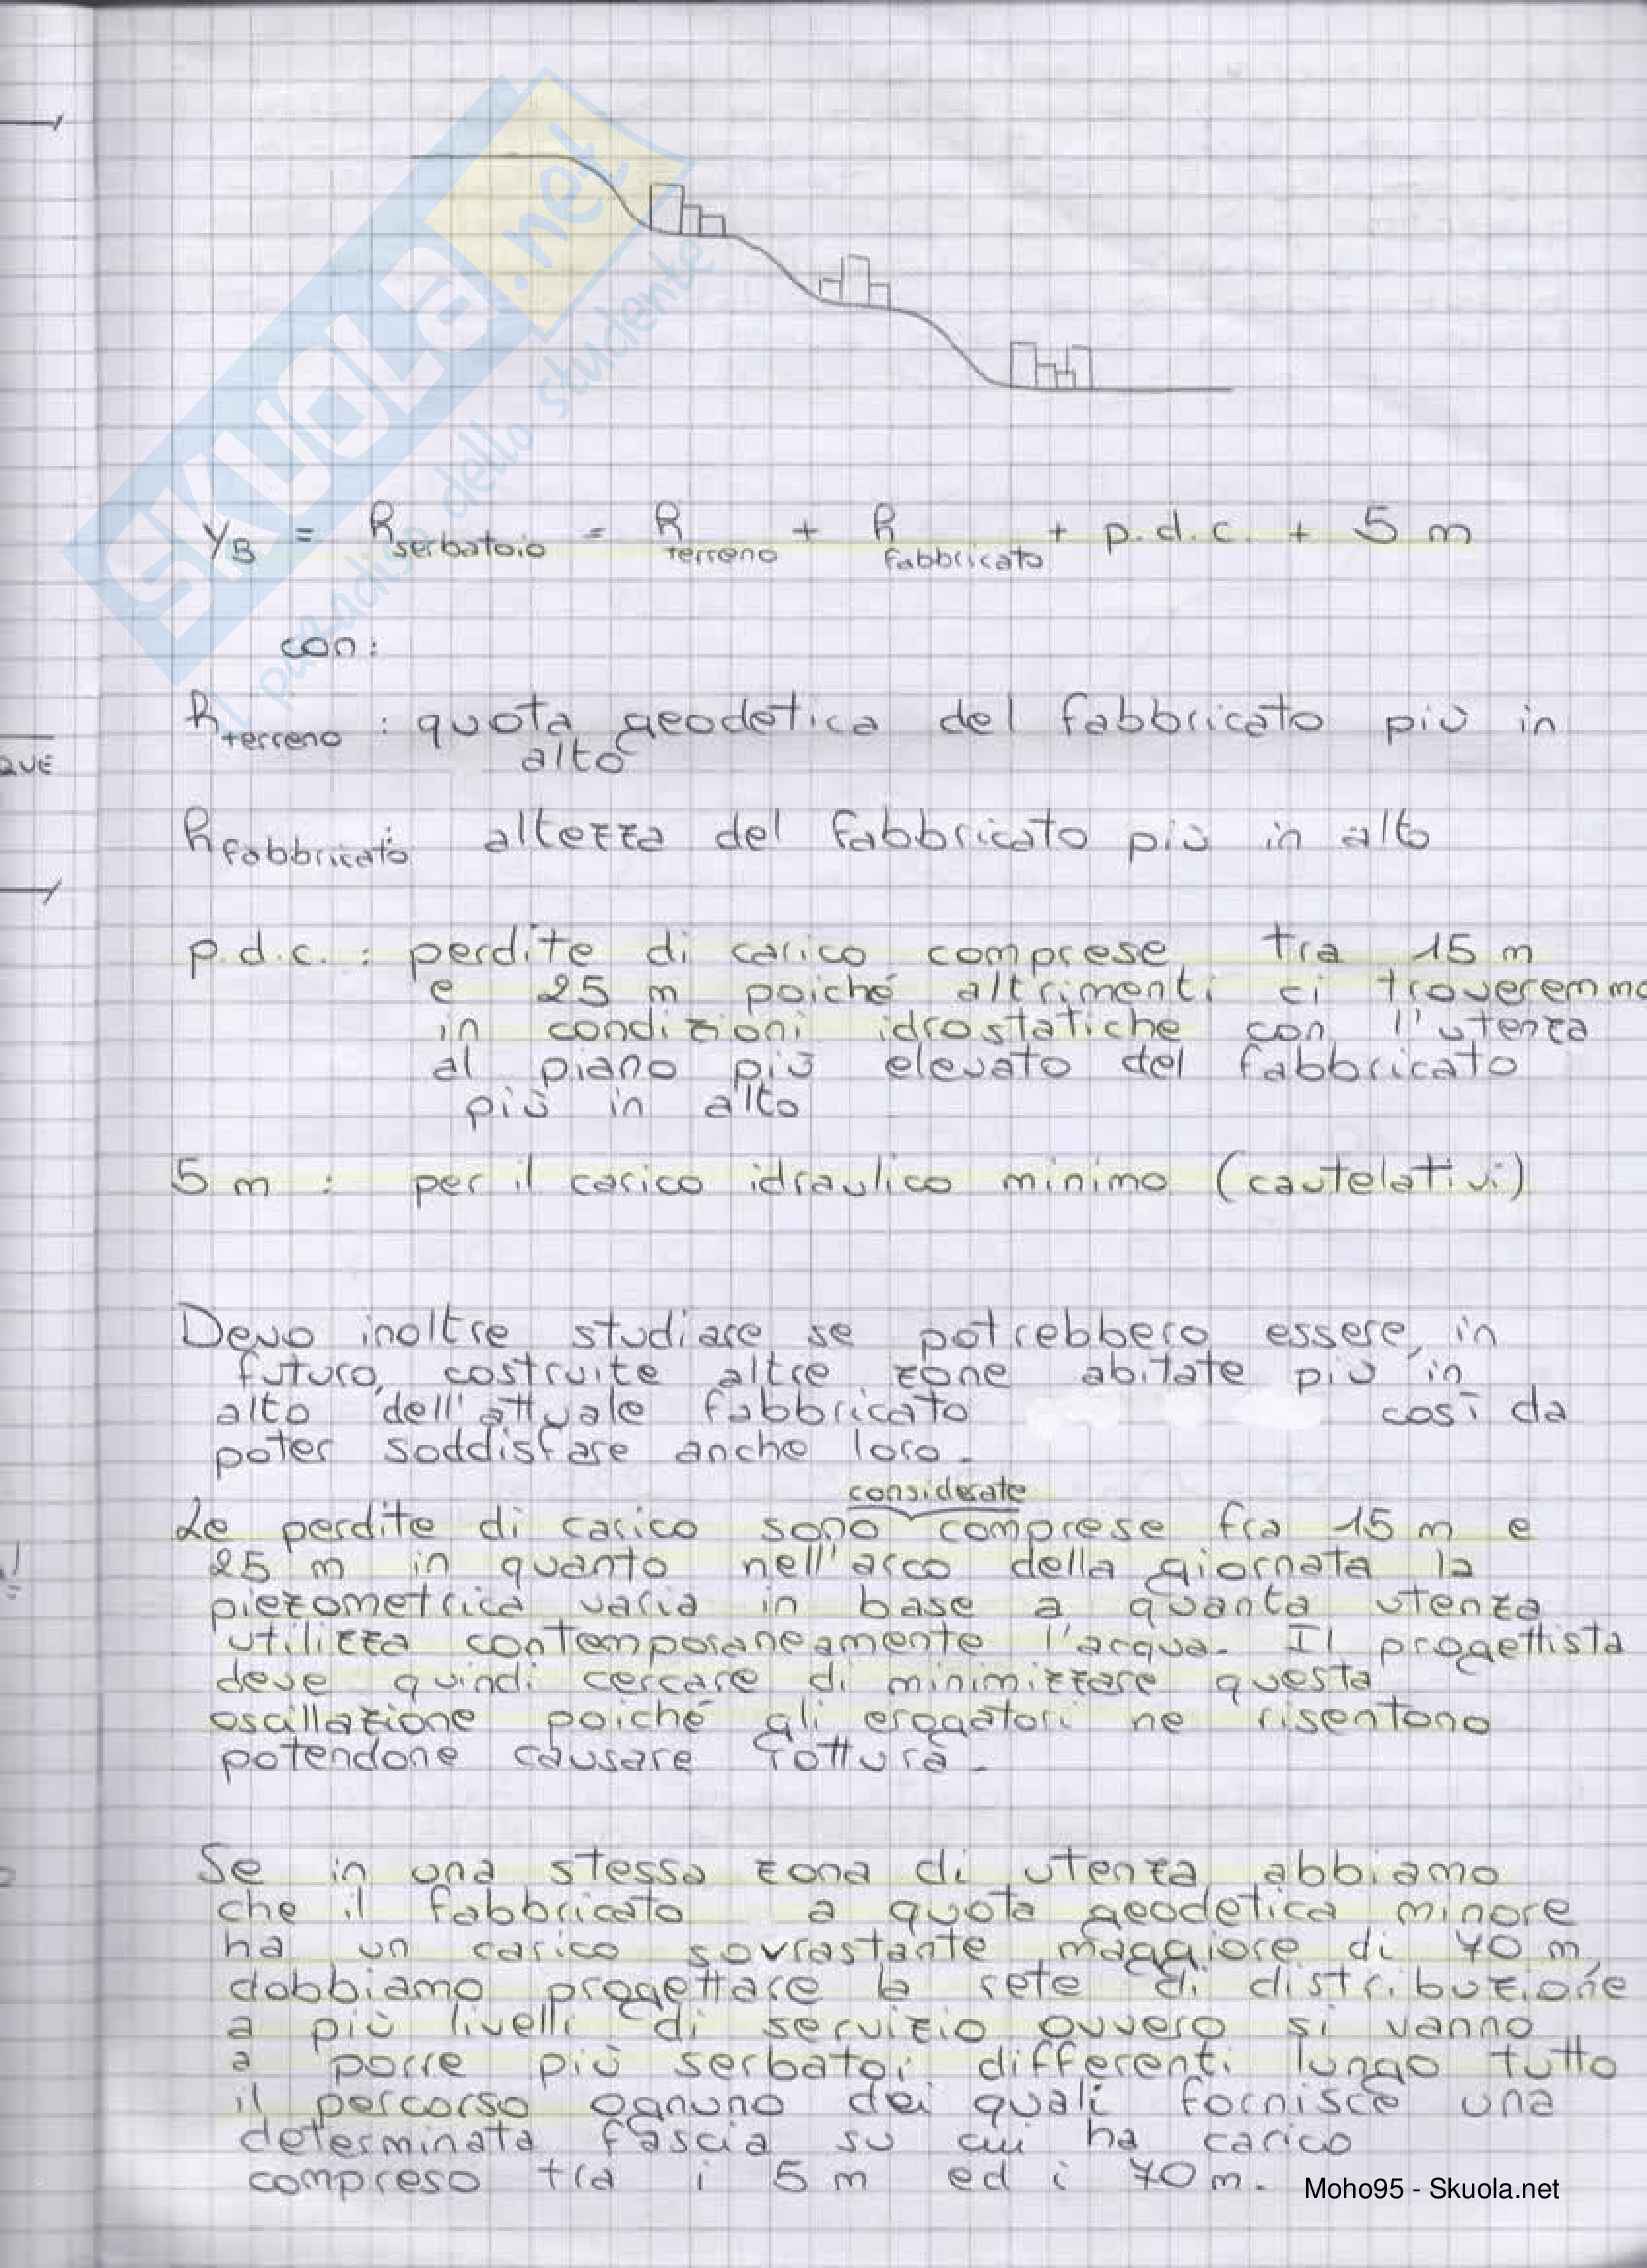 Y_B = h_serbatoio = h_terreno + h_fabbricato + p.d.c. + 5 m
con:
h_terreno : quota geodetica del fabbricato più in
alto
h_fabbricato : altezza del fabbricato più in alto
p.d.c. : perdite di carico comprese tra 15 m
e 25 m poiché altrimenti ci troveremmo
in condizioni idrostatiche con l'utenza
al piano più elevato del fabbricato
più in alto
5 m : per il carico idraulico minimo (cautelativi)
Devo inoltre studiare se potrebbero essere, in
futuro, costruite altre zone abitate più in
alto dell'attuale fabbricato così da
poter soddisfare anche loro.
considerate
Le perdite di carico sono comprese fra 15 m e
25 m in quanto nell'arco della giornata la
piezometrica varia in base a quanta utenza
utilizza contemporaneamente l'acqua. Il progettista
deve quindi cercare di minimizzare questa
oscillazione poiché gli erogatori ne risentono
potendone causare rottura.
Se in una stessa zona di utenza abbiamo
che il fabbricato a quota geodetica minore
ha un carico sovrastante maggiore di 70 m,
dobbiamo progettare la rete di distribuzione
a più livelli di servizio ovvero si vanno
a porre più serbatoi differenti lungo tutto
il percorso ognuno dei quali fornisce una
determinata fascia su cui ha carico
compreso tra i 5 m ed i 70 m.
Moho95 - Skuola.net
SKUOLA.net
il paradiso dello studente
QUE